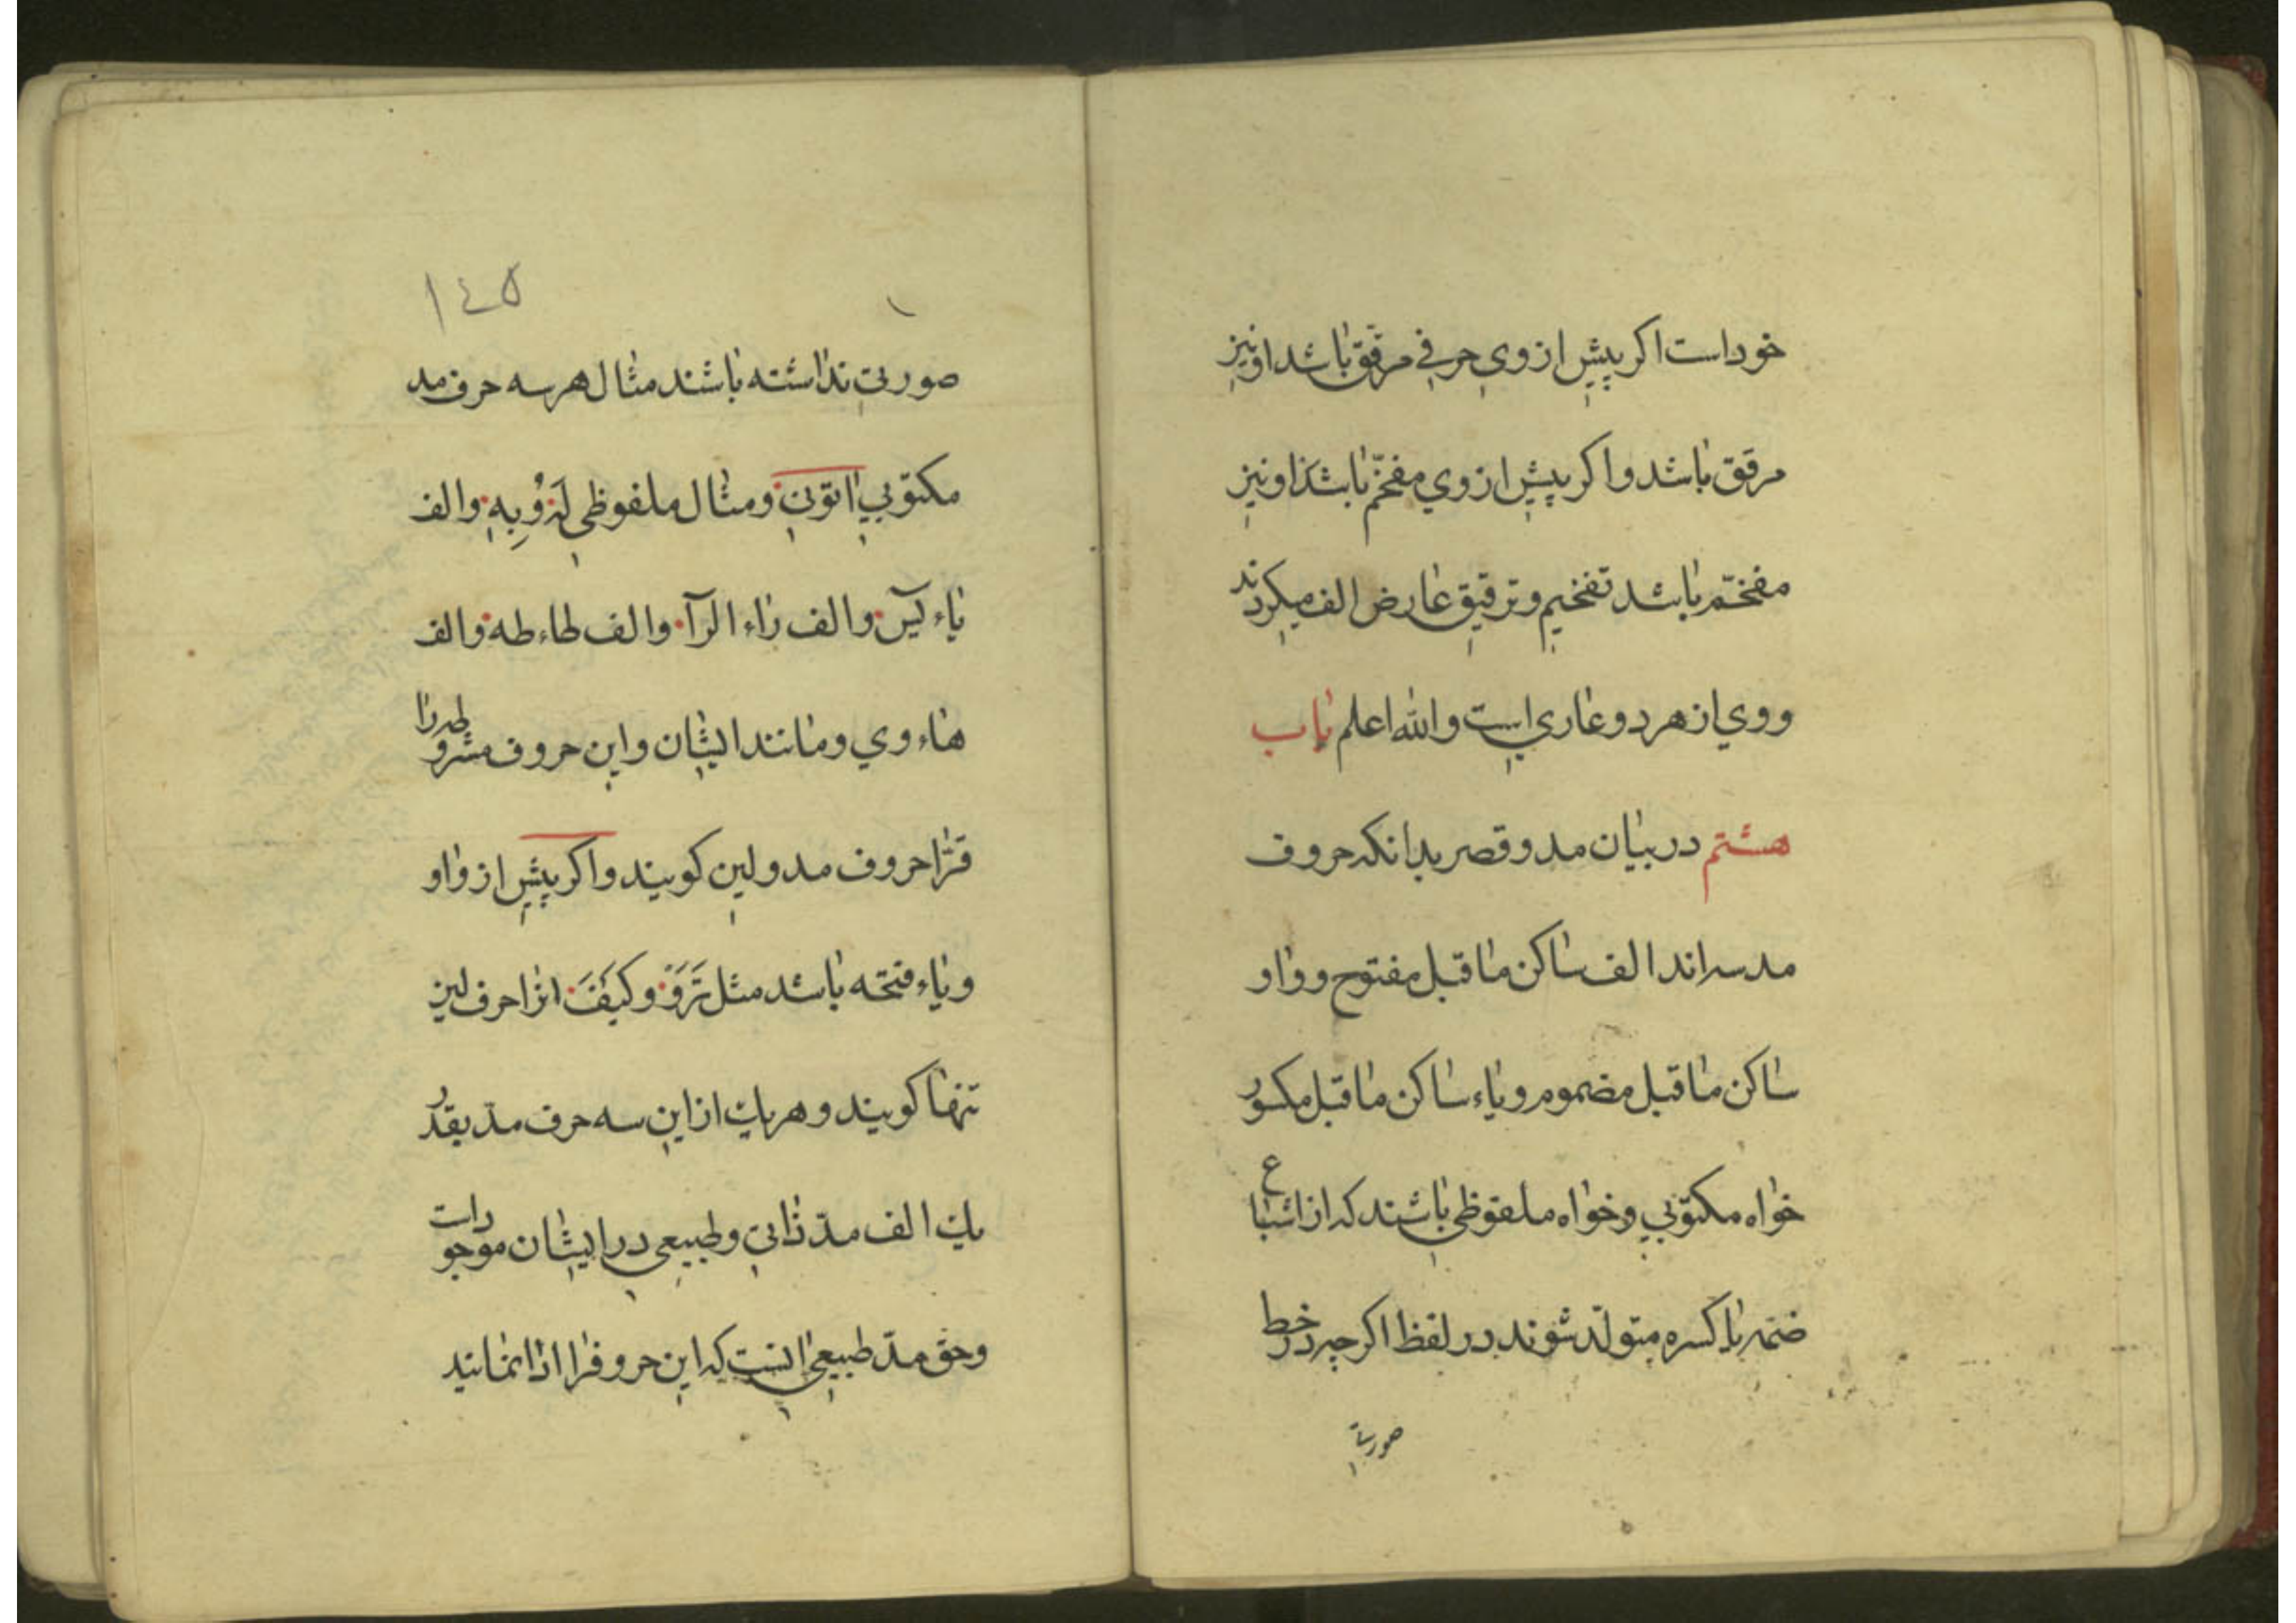 خوداست اکر پیش ازوی حرفی مرقق باشد اونیز
مرقق باشد واکر پیش ازوي مفخّم باشد اونیز
مفخّم باشد تفخیم وترقیق عارض الف میکردند
ووي ازهردوعاري است والله اعلم باب
هشتم دربیان مدوقصر بدانکه حروف
مدسه اند الف ساکن ماقبل مفتوح وواو
ساکن ماقبل مضموم ویاء ساکن ماقبل مکسور
خواه مکتوبي وخواه ملفوظی باشند که ازاشباع
ضمه یاکسره متولّد شوند درلفظ اکرچه درخط
صورتی
١٤٥
صورتی نداشته باشند مثال هرسه حرف مد
مکتوبي اتوني ومثال ملفوظی لَهُ وُبِهِ والف
یاء یٓس والف راء الرآ والف طاء طه والف
هاء وي ومانند ایشان واین حروف مشروطه را
قرّا حروف مدولین کویند واکر پیش ازواو
ویاء فتحه باشد مثل تَرَوْ وکَیْفَ انرا حرف لین
تنها کویند وهریك ازاین سه حرف مدّ بقدر
یك الف مدّ ذاتی وطبیعی درایشان موجود است
وحق مدّ طبیعی انست که این حروفرا ادا نمانید